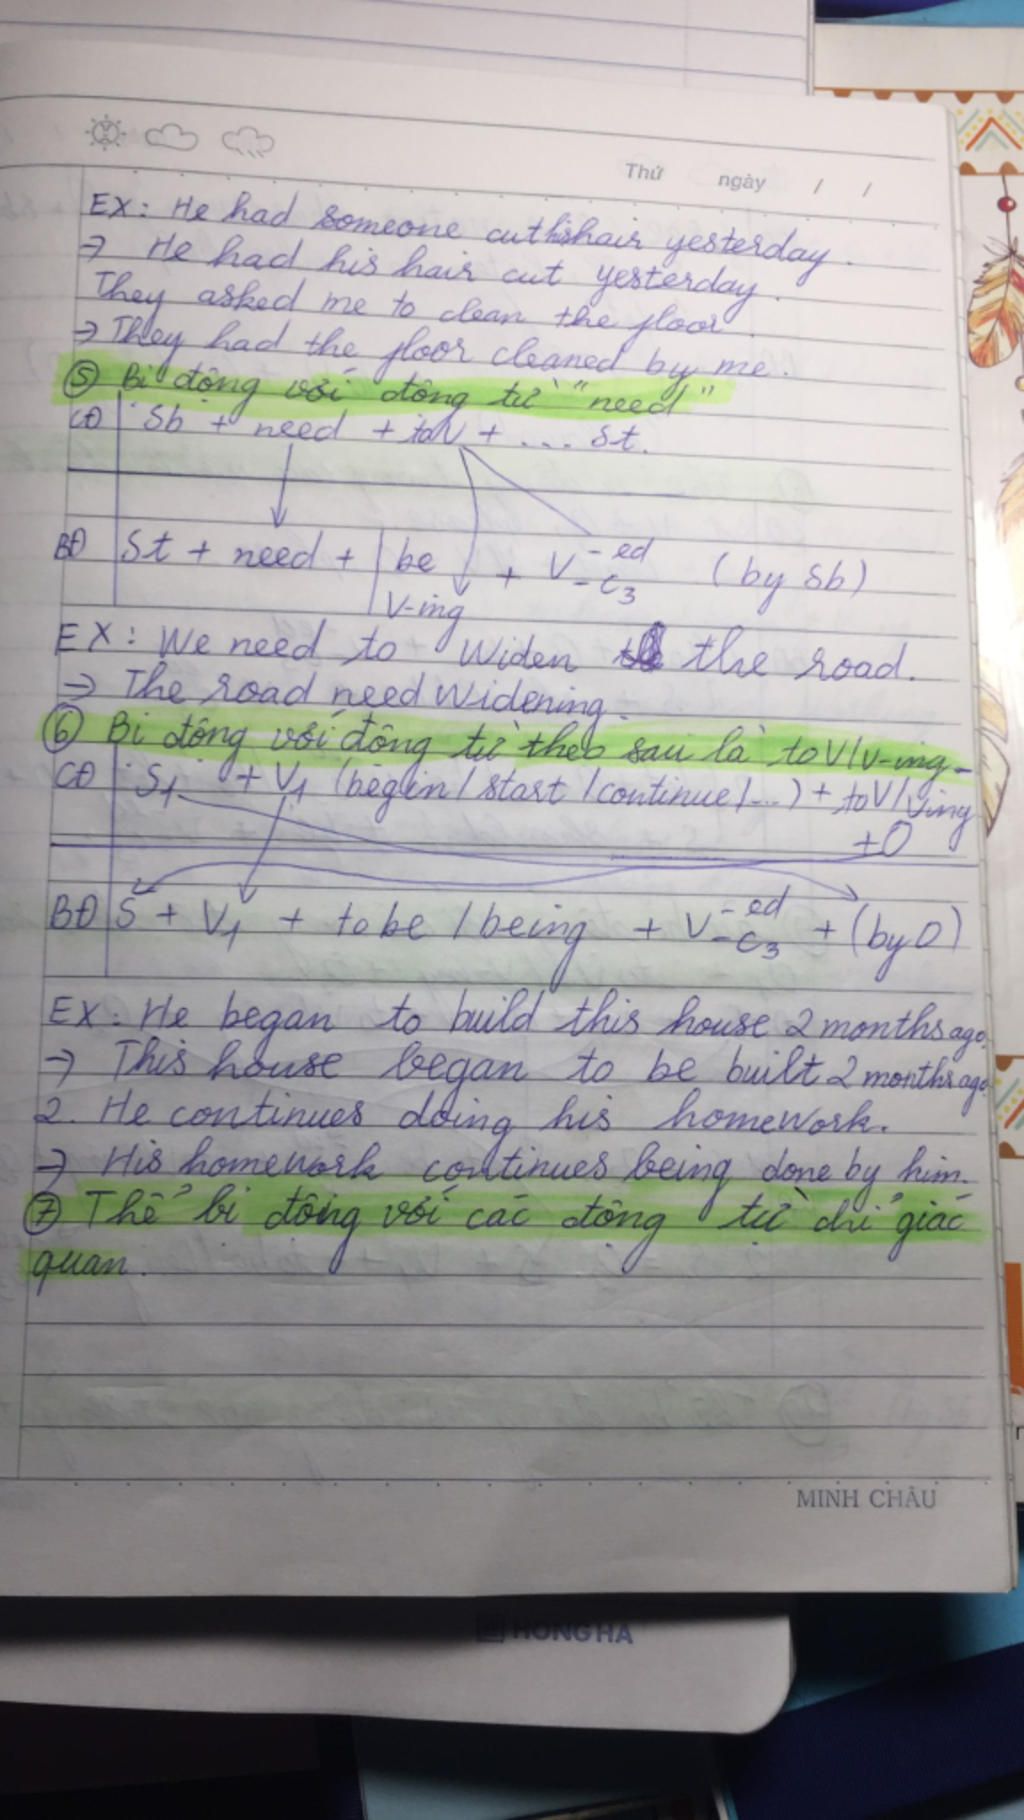 Thứ ngày / /
EX: He had someone cut his hair yesterday.
→ He had his hair cut yesterday.
They asked me to clean the floor.
→ They had the floor cleaned by me.
⑤ Bị động với động từ "need"
CĐ Sb + need + to V + ... St.
BĐ St + need + be + V-ed (by Sb)
V-ing -c3
EX: We need to widen the road.
→ The road need widening.
⑥ Bị động với động từ theo sau là to V/V-ing
CĐ S1 + V1 (begin / start / continue / ...) + to V/Ving
+O
BĐ S + V1 + to be / being + V-ed + (by O)
-c3
EX: He began to build this house 2 months ago.
→ This house began to be built 2 months ago
2. He continues doing his homework.
→ His homework continues being done by him.
⑦ Thể bị động với các động từ chỉ giác
quan.
MINH CHÂU
HONG HA